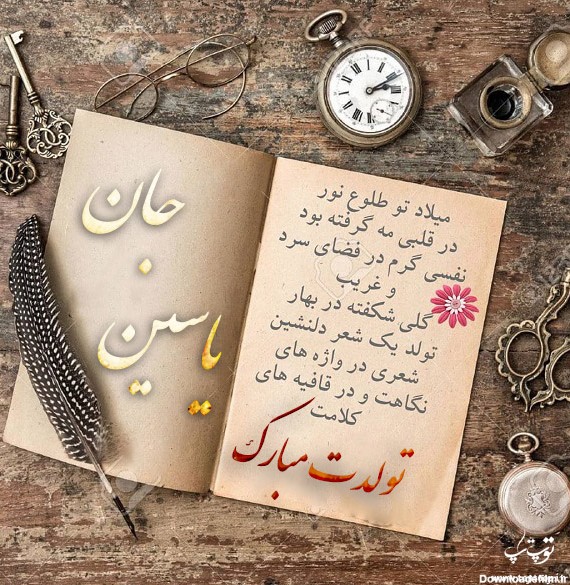 جان
یاسین
میلاد تو طلوع نور
در قلبی مه گرفته بود
نفسی گرم در فضای سرد
و غریب
گلی شکفته در بهار
تولد یک شعر دلنشین
شعری در واژه های
نگاهت و در قافیه های
کلامت
تولدت مبارک
توپ تاپ